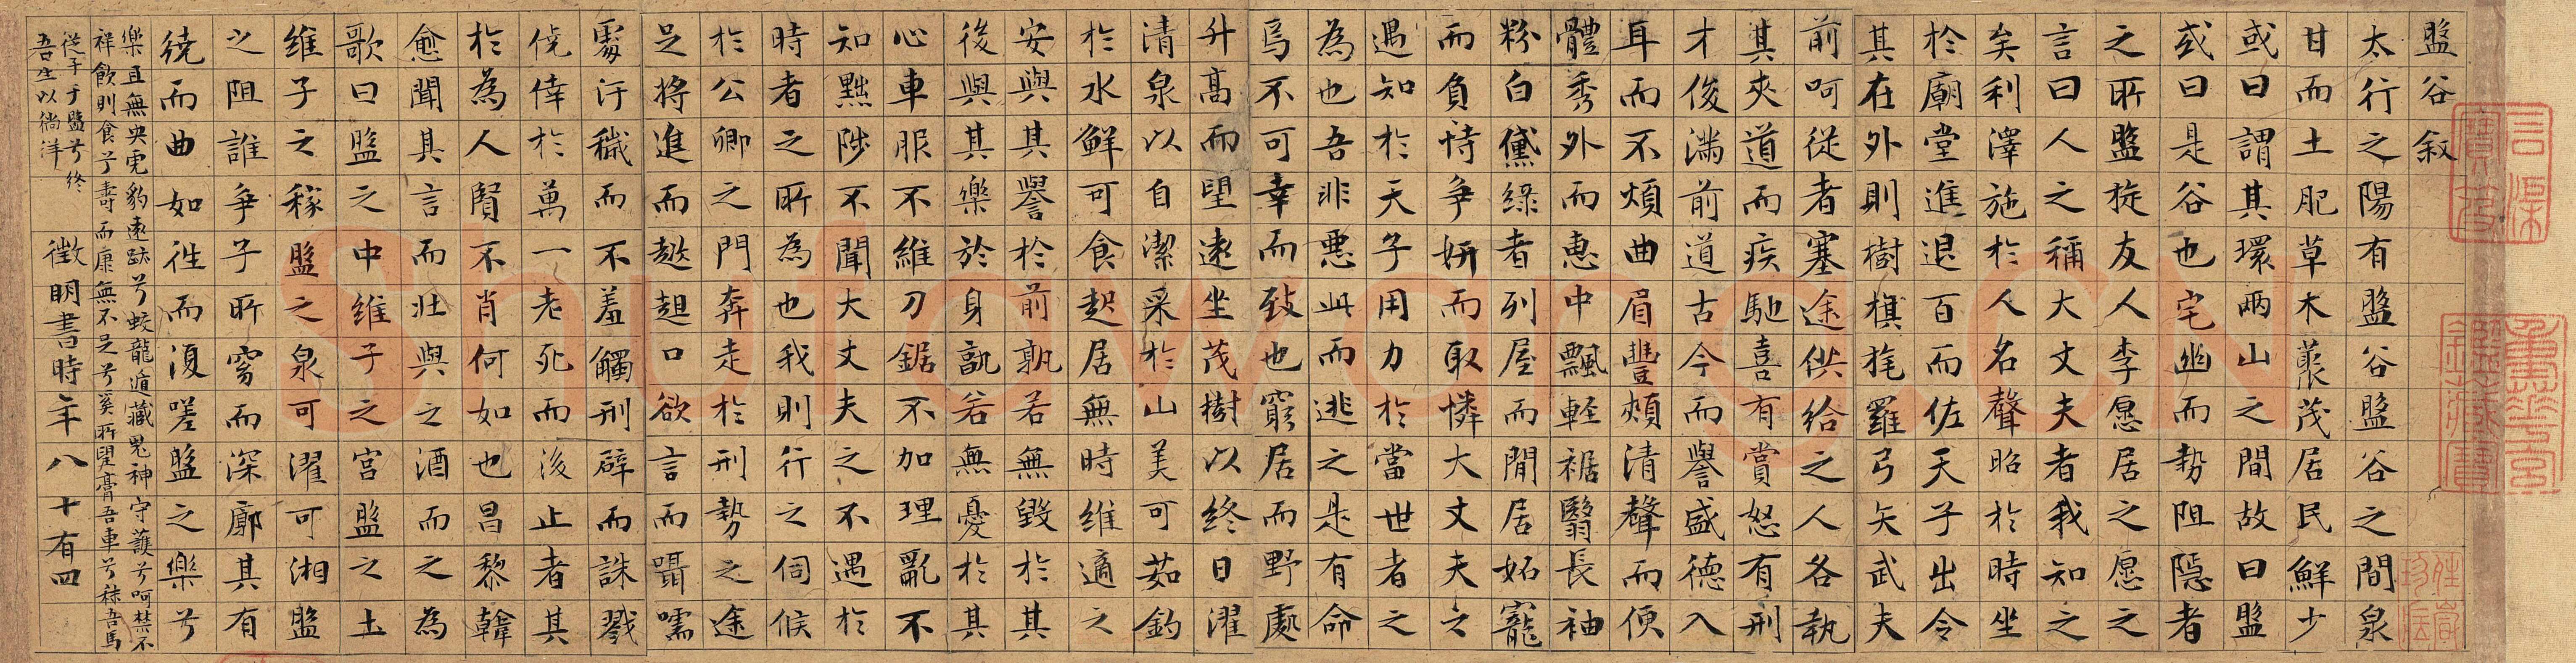 盤谷叙
太行之陽有盤谷盤谷之間泉
甘而土肥草木藂茂居民鮮少
或曰謂其環兩山之間故曰盤
或曰是谷也宅幽而勢阻隱者
之所盤旋友人李愿居之愿之
言曰人之稱大丈夫者我知之
矣利澤施於人名聲昭於時坐
於廟堂進退百而佐天子出令
其在外則樹旗旄羅弓矢武夫
前呵從者塞途供給之人各執
其夾道而疾馳喜有賞怒有刑
才俊滿前道古今而譽盛德入
耳而不煩曲眉豐頰清聲而便
體秀外而惠中飄輕裾翳長袖
粉白黛綠者列屋而閒居妬寵
而負恃爭妍而取憐大丈夫之
遇知於天子用力於當世者之
為也吾非惡此而逃之是有命
焉不可幸而致也窮居而野處
升高而望遠坐茂樹以終日濯
清泉以自潔采於山美可茹釣
於水鮮可食起居無時維適之
安與其譽於前孰若無毀於其
後與其樂於身孰若無憂於其
心車服不維刀鋸不加理亂不
知黜陟不聞大丈夫之不遇於
時者之所為也我則行之伺候
於公卿之門奔走於刑勢之途
足將進而趑趄口欲言而囁嚅
處汙穢而不羞觸刑辟而誅戮
僥倖於萬一老死而後止者其
於為人賢不肖何如也昌黎韓
愈聞其言而壯與之酒而之為
歌曰盤之中維子之宮盤之土
維子之稼盤之泉可濯可湘盤
之阻誰爭子所窈而深廓其有
繞而曲如往而復嗟盤之樂兮
樂且無央虎豹遠跡兮蛟龍遁藏鬼神守護兮呵禁不
祥飲則食兮壽而康無不足兮奚所望膏吾車兮秣吾馬
從子于盤兮終
吾生以徜徉
徵明書時年八十有四
Shufawang.CN